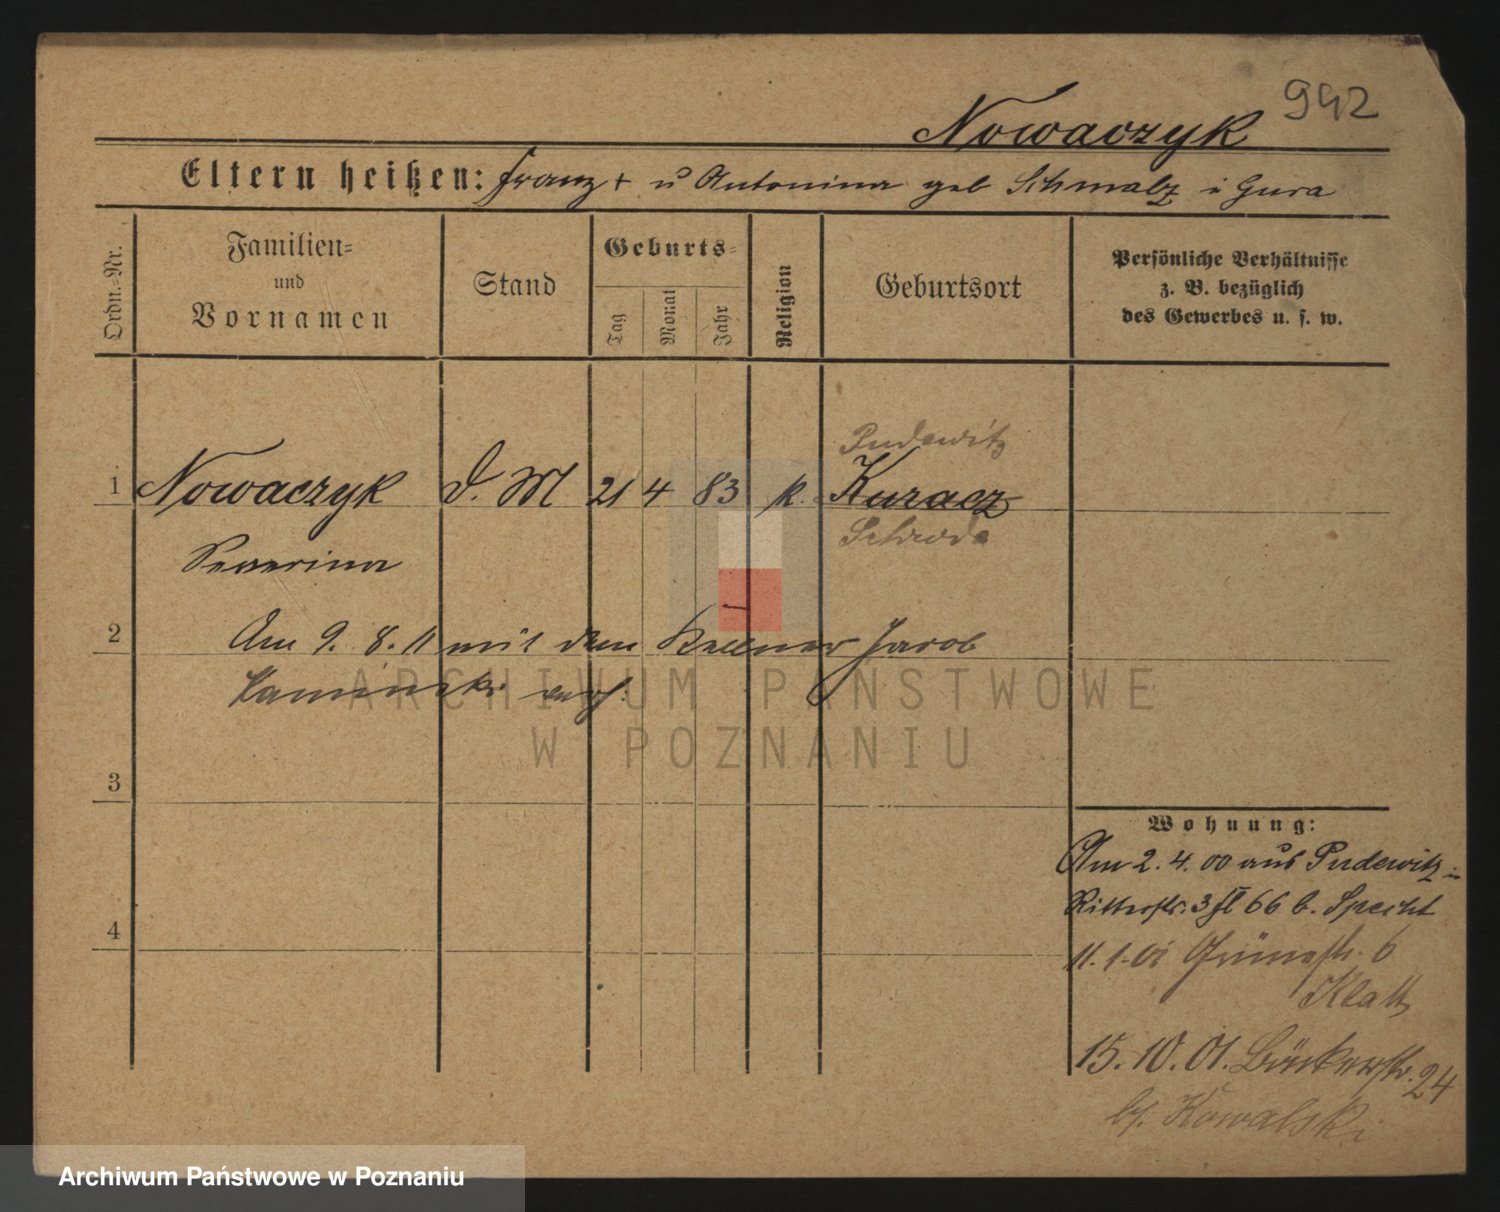 942
Nowaczyk
Eltern heißen: Franz + u Antonina geb Schmalz i Gura
Ordn.-Nr.
Familien-
und
Vornamen
Stand
Geburts-
Tag
Monat
Jahr
Religion
Geburtsort
Persönliche Verhältnisse
z. B. bezüglich
des Gewerbes u. s. w.
Pudewitz
1 Nowaczyk D. M 21 4 83 k. Kuracz
Schroda
Severina
2 Am 9. 8. 11 mit dem Kellner Jacob
Kaminski verh.
ARCHIWUM PAŃSTWOWE
W POZNANIU
3
4
Wohnung:
Am 2. 4. 00 aus Pudewitz in
Ritterstr. 3 II 66 b. Specht
11. 1. 01 Grünestr. 6
Klatt
15. 10. 01. Bäckerstr. 24
b/. Kowalski
Archiwum Państwowe w Poznaniu